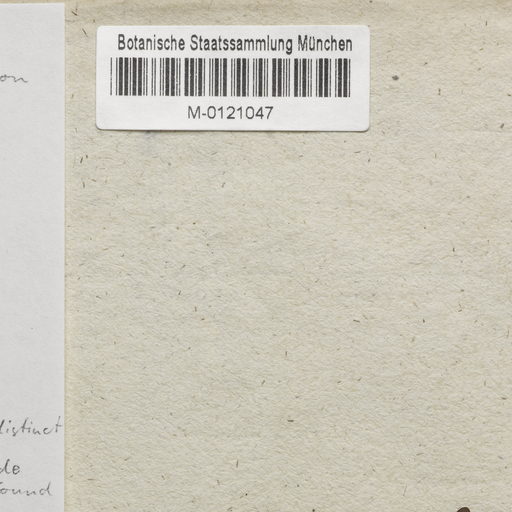 Botanische Staatssammlung München
M-0121047
on
distinct
de
found